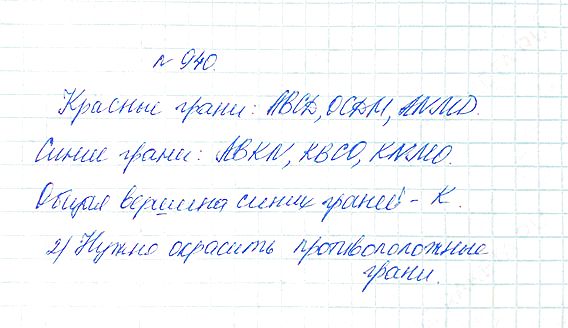 № 940.
Красные грани: ABCD, OCDM, ANMD.
Синие грани: ABKN, KBCO, KNMO.
Общая вершина синих граней - K.
2) Нужно окрасить противоположные
грани.